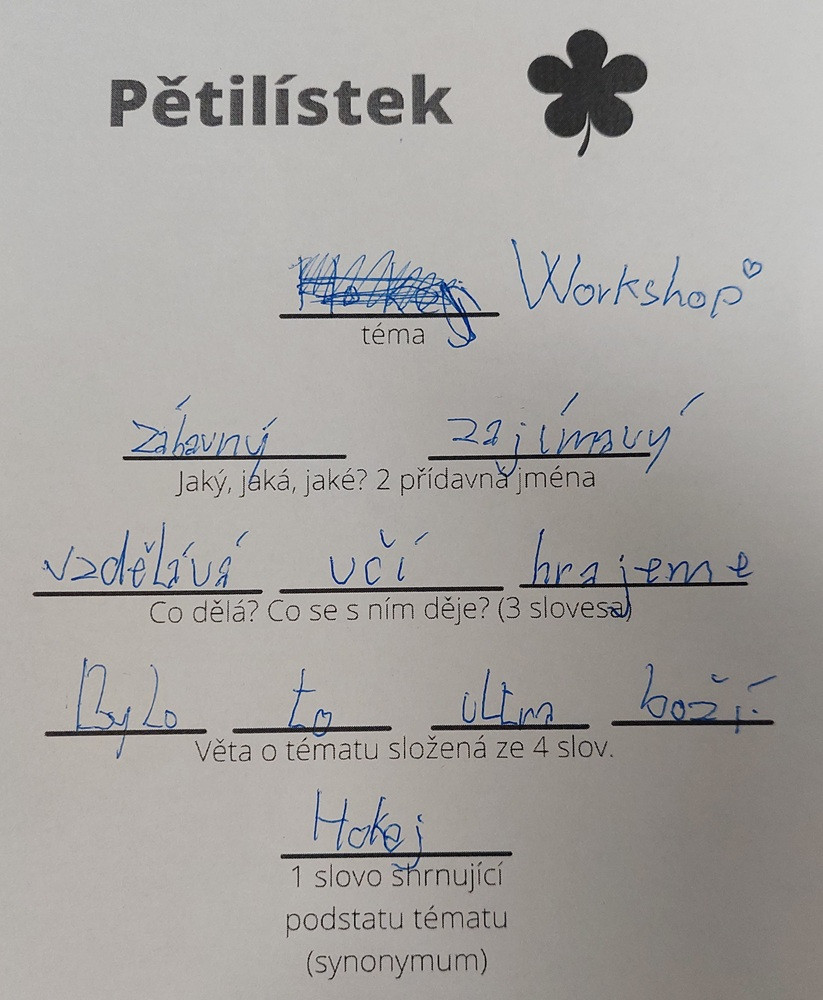 Pětilístek
Workshop
téma
zábavný zajímavý
Jaký, jaká, jaké? 2 přídavná jména
vzdělává učí hrajeme
Co dělá? Co se s ním děje? (3 slovesa)
Bylo to ultra boží
Věta o tématu složená ze 4 slov.
Hokej
1 slovo shrnující
podstatu tématu
(synonymum)